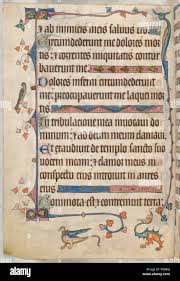 et ab inimicis meis saluus ero
Circumdederunt me dolores mor
tis et torrentes iniquitatis contur
bauerunt me
Dolores inferni circumdederunt
me preoccupauerunt me laquei mor
tis
In tribulatione mea inuocaui do
minum et ad deum meum clamaui
Et exaudiuit de templo sancto suo
uocem meam et clamor meus in
conspectu eius introiuit in aures
eius
Commota est et contremuit terra